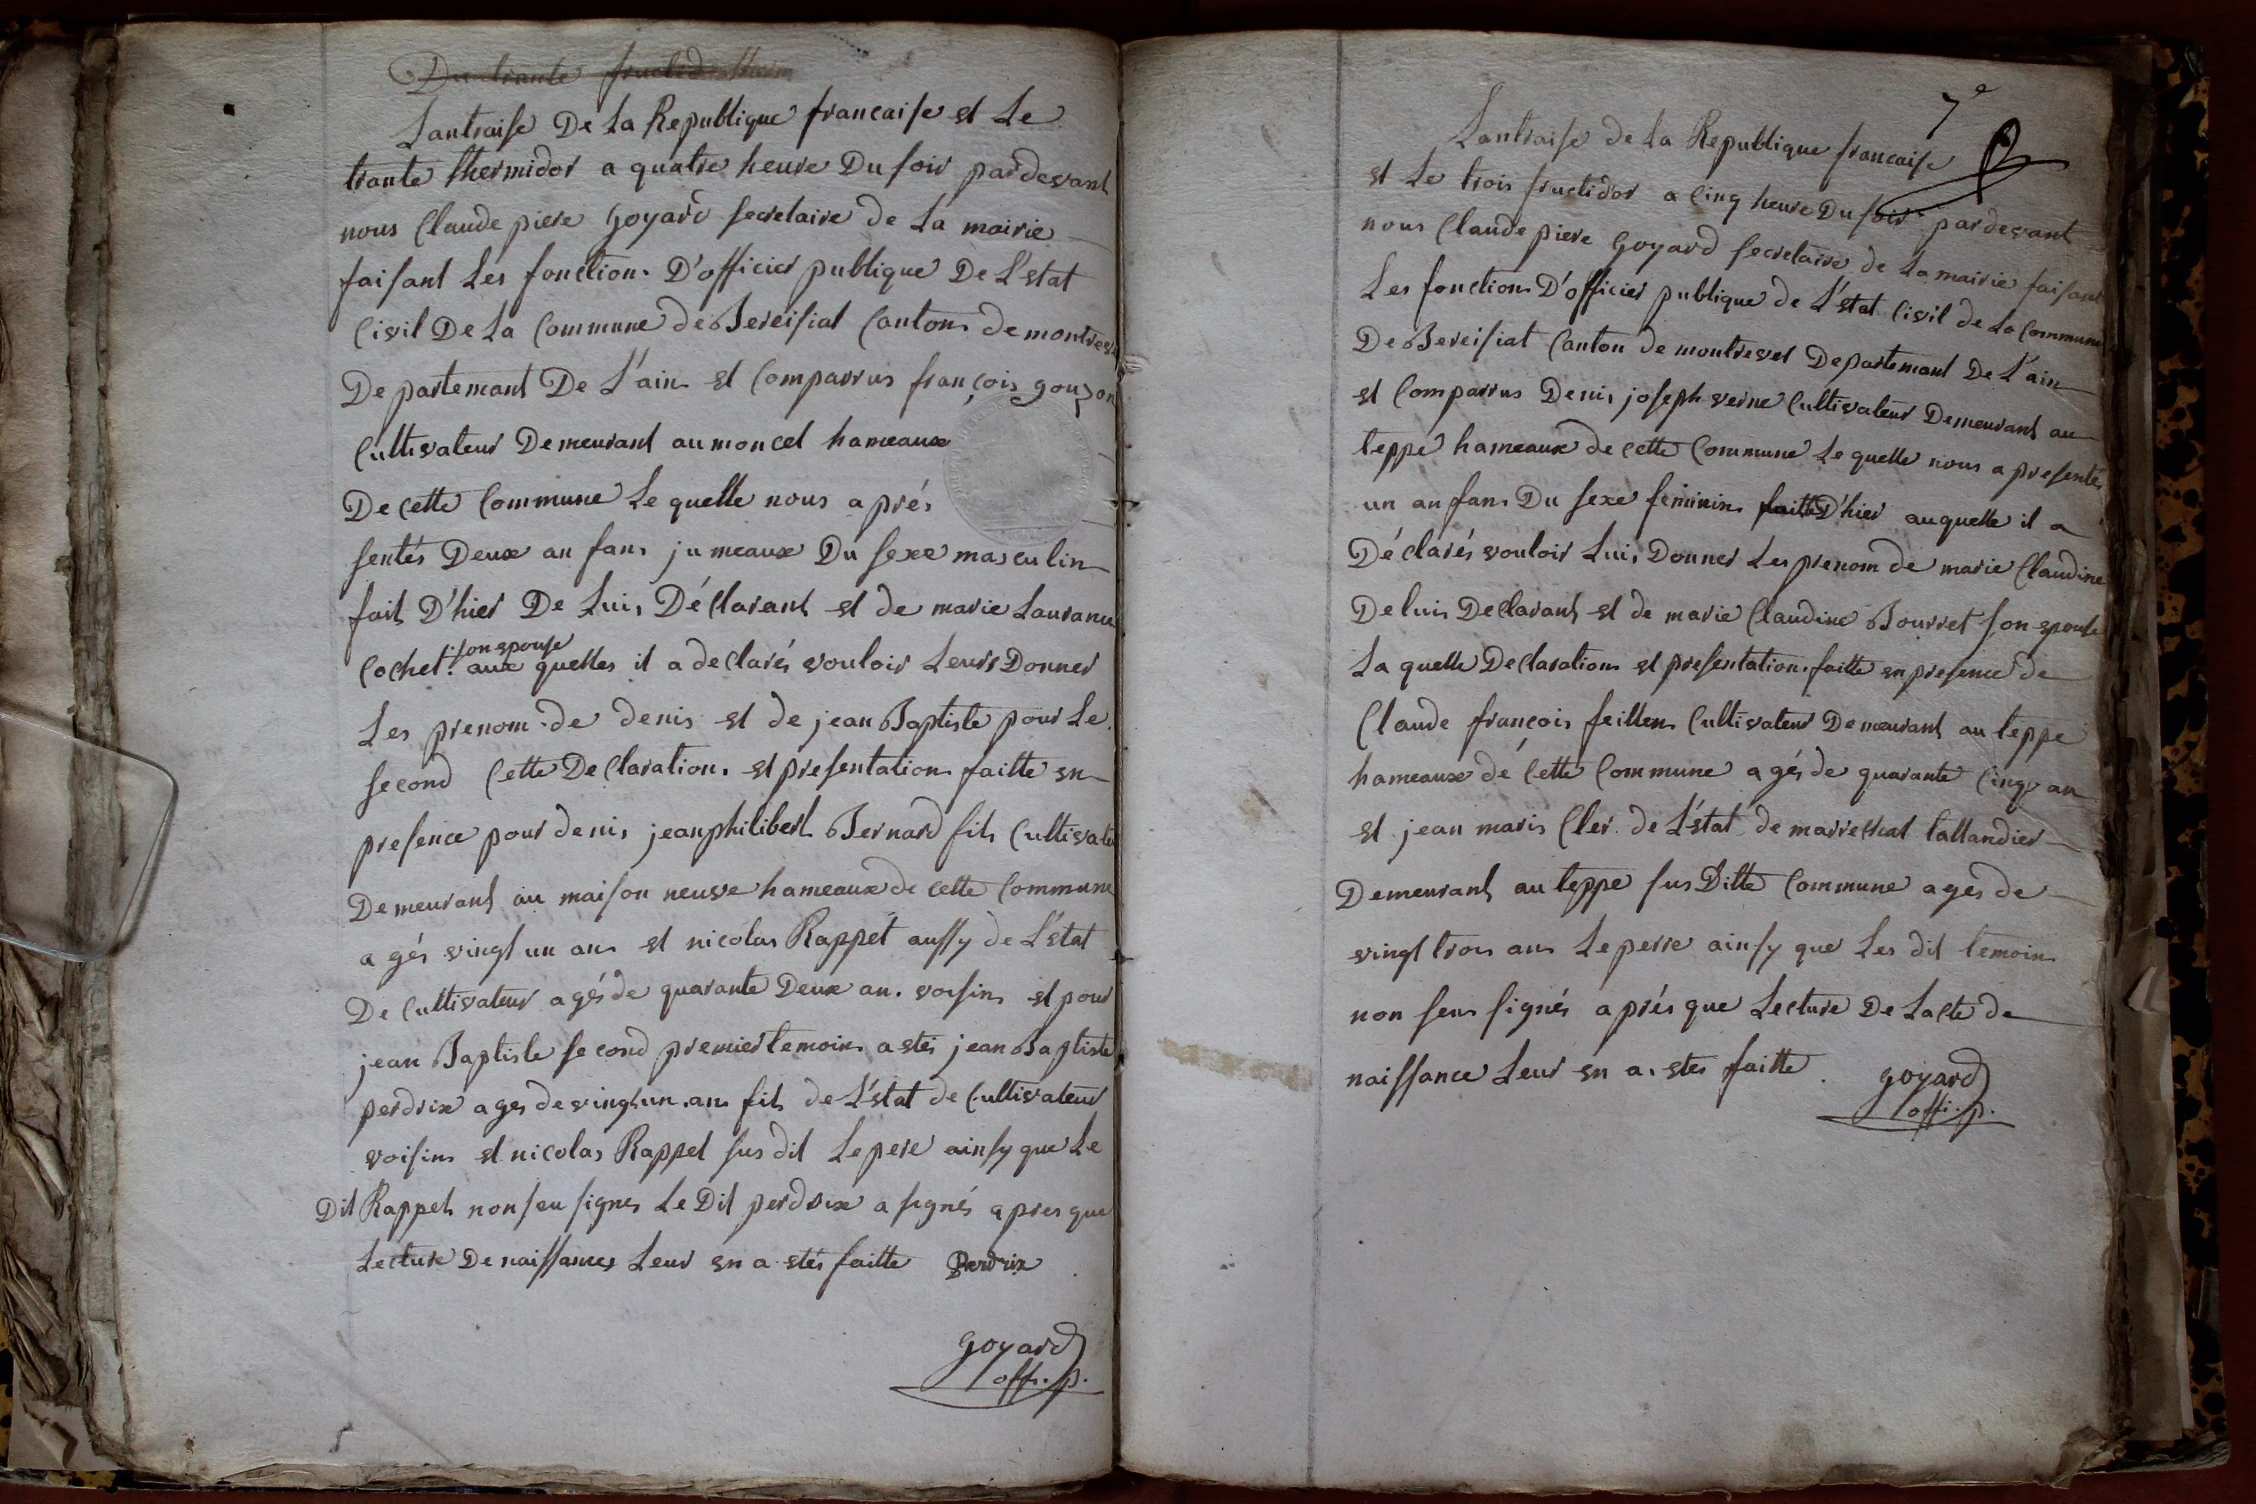 Du trante fructid
Lantraise De La Republique francaise et Le
trante thermidor a quatre heure Du soir pardevant
nous Claude piere Goyard secretaire de La mairie
faisant Les fonction D'officier publique De L'état
Civil De La Commune de Bereisiat Canton de montreve
Departemant De L'ain et Comparrus françois gouzon
Cultivateur Demeurant au moncel hameaux
De Cette Commune Le quelle nous a prés
sentés Deux an fans jumeaux Du sexe masculin
fait D'hier De Luis Déclarant et de marie Lauranc
Cochet son epouse aux quelles il a declarés vouloir Leurs Donner
Les prenom de denis et de jean Baptiste pour Le
second Cette Declaration et presentation faitte en
presence pour denis jeanphilibert Bernard fils Cultivate
Demeurant au maison neuve hameaux de cette Commune
agés vingt un ans et nicolas Rappet aussy de L'état
De Cultivateur agés de quarante Deux an voisins et pour
jean Baptiste second premier temoins a etés jean Baptiste
perdrix ages de vingt un ans fils de L'état de Cultivateur
voisins et nicolas Rappet sus dit Le pere ainsy que Le
Dit Rappet non seu signer Le Dit perdrix a signés apres que
Lecture De naissances Leur en a etés faitte Perdrix
Goyard
offi. p.
7e
Lantraise de La Republique francaise
et Le trois fructidor a Cinq heure Du soir pardevant
nous Claude piere Goyard secretaire de La mairie faisant
Les fonctions D'officier publique de L'état Civil de La Commune
De Bereisiat Canton de montrevel Departemant De L'ain
et Comparrus Denis joseph verne Cultivateur Demeurant au
teppe hameaux de Cette Commune Le quelle nous a presentés
un anfans Du sexe feminin faitte D'hier auquelle il a
Déclarés vouloir Luis Donner Les prenom de marie Claudine
De luis Declarant et de marie Claudine Bourret son epouse
La quelle Declaration et presentation faitte en presence de
Claude françois feillens Cultivateur Demeurant au teppe
hameaux dé Cette Commune agés de quarante Cinq an
et jean maris Cler de L'état de marrechal tallandier
Demeurant au teppe sus Ditte Commune ages de
vingt trois ans Le perre ainsy que Les dit temoins
non seus signés aprés que Lecture De Lacte de
naissance Leur en a etés faitte. Goyard
offi. p.